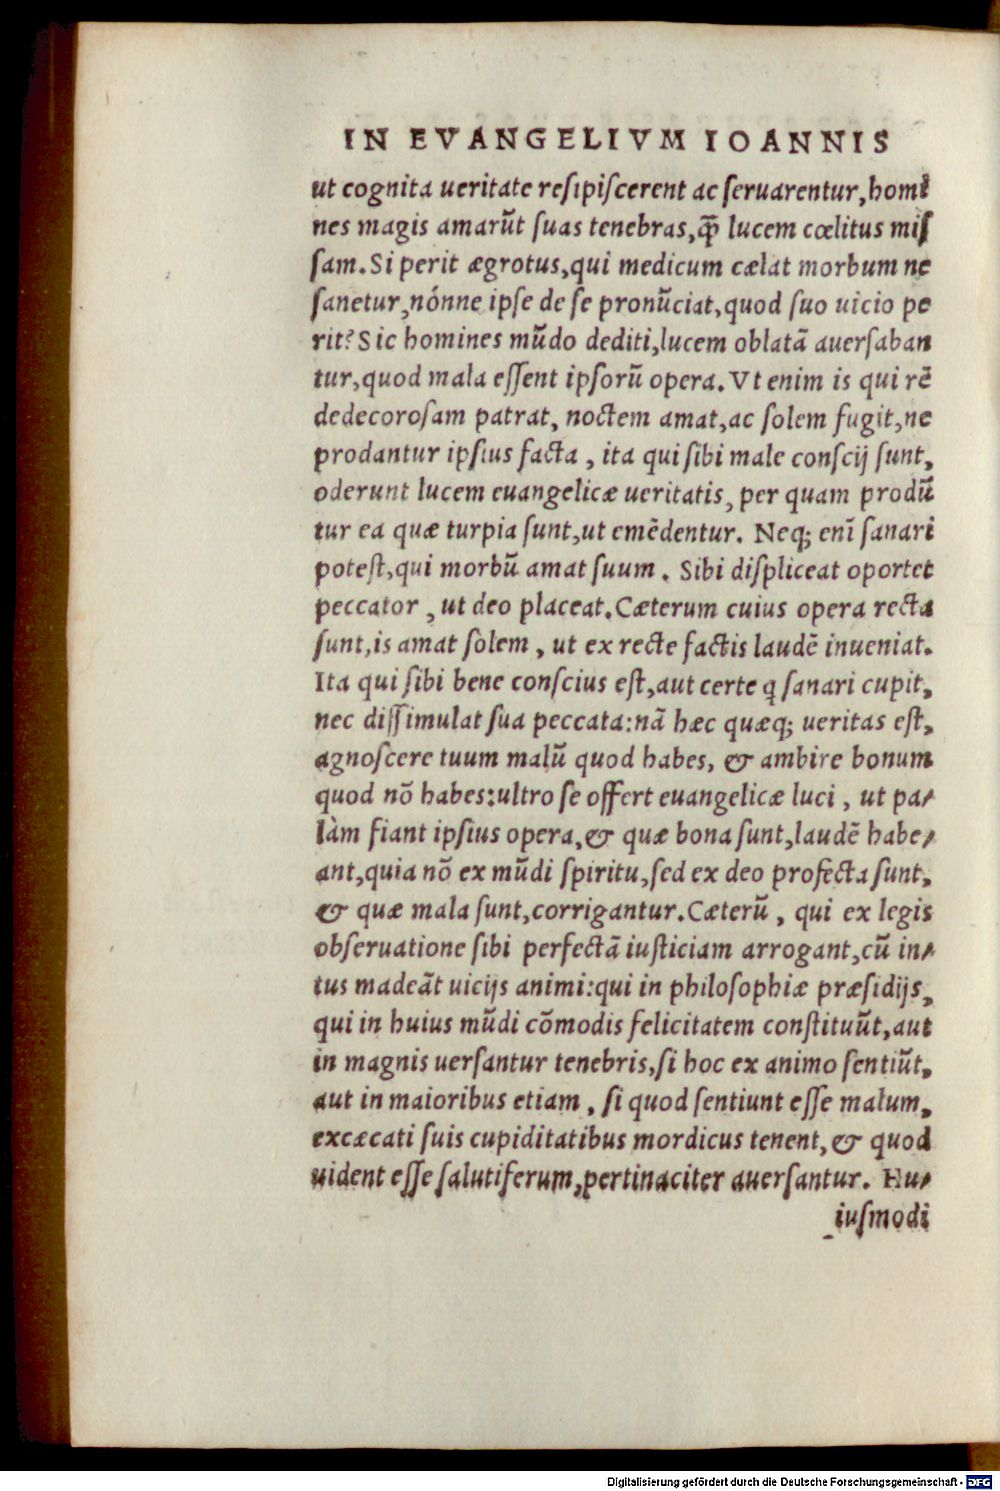 IN EVANGELIVM IOANNIS
ut cognita ueritate resipiscerent ac seruarentur, homi
nes magis amarūt suas tenebras, qꝫ̄ lucem cœlitus mis
sam. Si perit ægrotus, qui medicum cælat morbum ne
sanetur, nónne ipse de se pronūciat, quod suo uicio pe
rit? Sic homines mūdo dediti, lucem oblatā auersaban
tur, quod mala essent ipsorū opera. Vt enim is qui rē
dedecorosam patrat, noctem amat, ac solem fugit, ne
prodantur ipsius facta, ita qui sibi male conscij sunt,
oderunt lucem euangelicæ ueritatis, per quam produ̅
tur ea quæ turpia sunt, ut emēdentur. Neqꝫ enī sanari
potest, qui morbū amat suum. Sibi displiceat oportet
peccator, ut deo placeat. Cæterum cuius opera recta
sunt, is amat solem, ut ex recte factis laudē inueniat.
Ita qui sibi bene conscius est, aut certe q̨ sanari cupit,
nec dissimulat sua peccata: nā hæc quæqꝫ ueritas est,
agnoscere tuum malū quod habes, & ambire bonum
quod nō habes: ultro se offert euangelicæ luci, ut pa-
làm fiant ipsius opera, & quæ bona sunt, laudē habe-
ant, quia nō ex mūdi spiritu, sed ex deo profecta sunt,
& quæ mala sunt, corrigantur. Cæterū, qui ex legis
obseruatione sibi perfectā iusticiam arrogant, cū in-
tus madeāt uicijs animi: qui in philosophiæ præsidijs,
qui in huius mūdi cōmodis felicitatem constituūt, aut
in magnis uersantur tenebris, si hoc ex animo sentiūt,
aut in maioribus etiam, si quod sentiunt esse malum,
excæcati suis cupiditatibus mordicus tenent, & quod
uident esse salutiferum, pertinaciter auersantur. Hu-
iusmodi
Digitalisierung gefördert durch die Deutsche Forschungsgemeinschaft - DFG